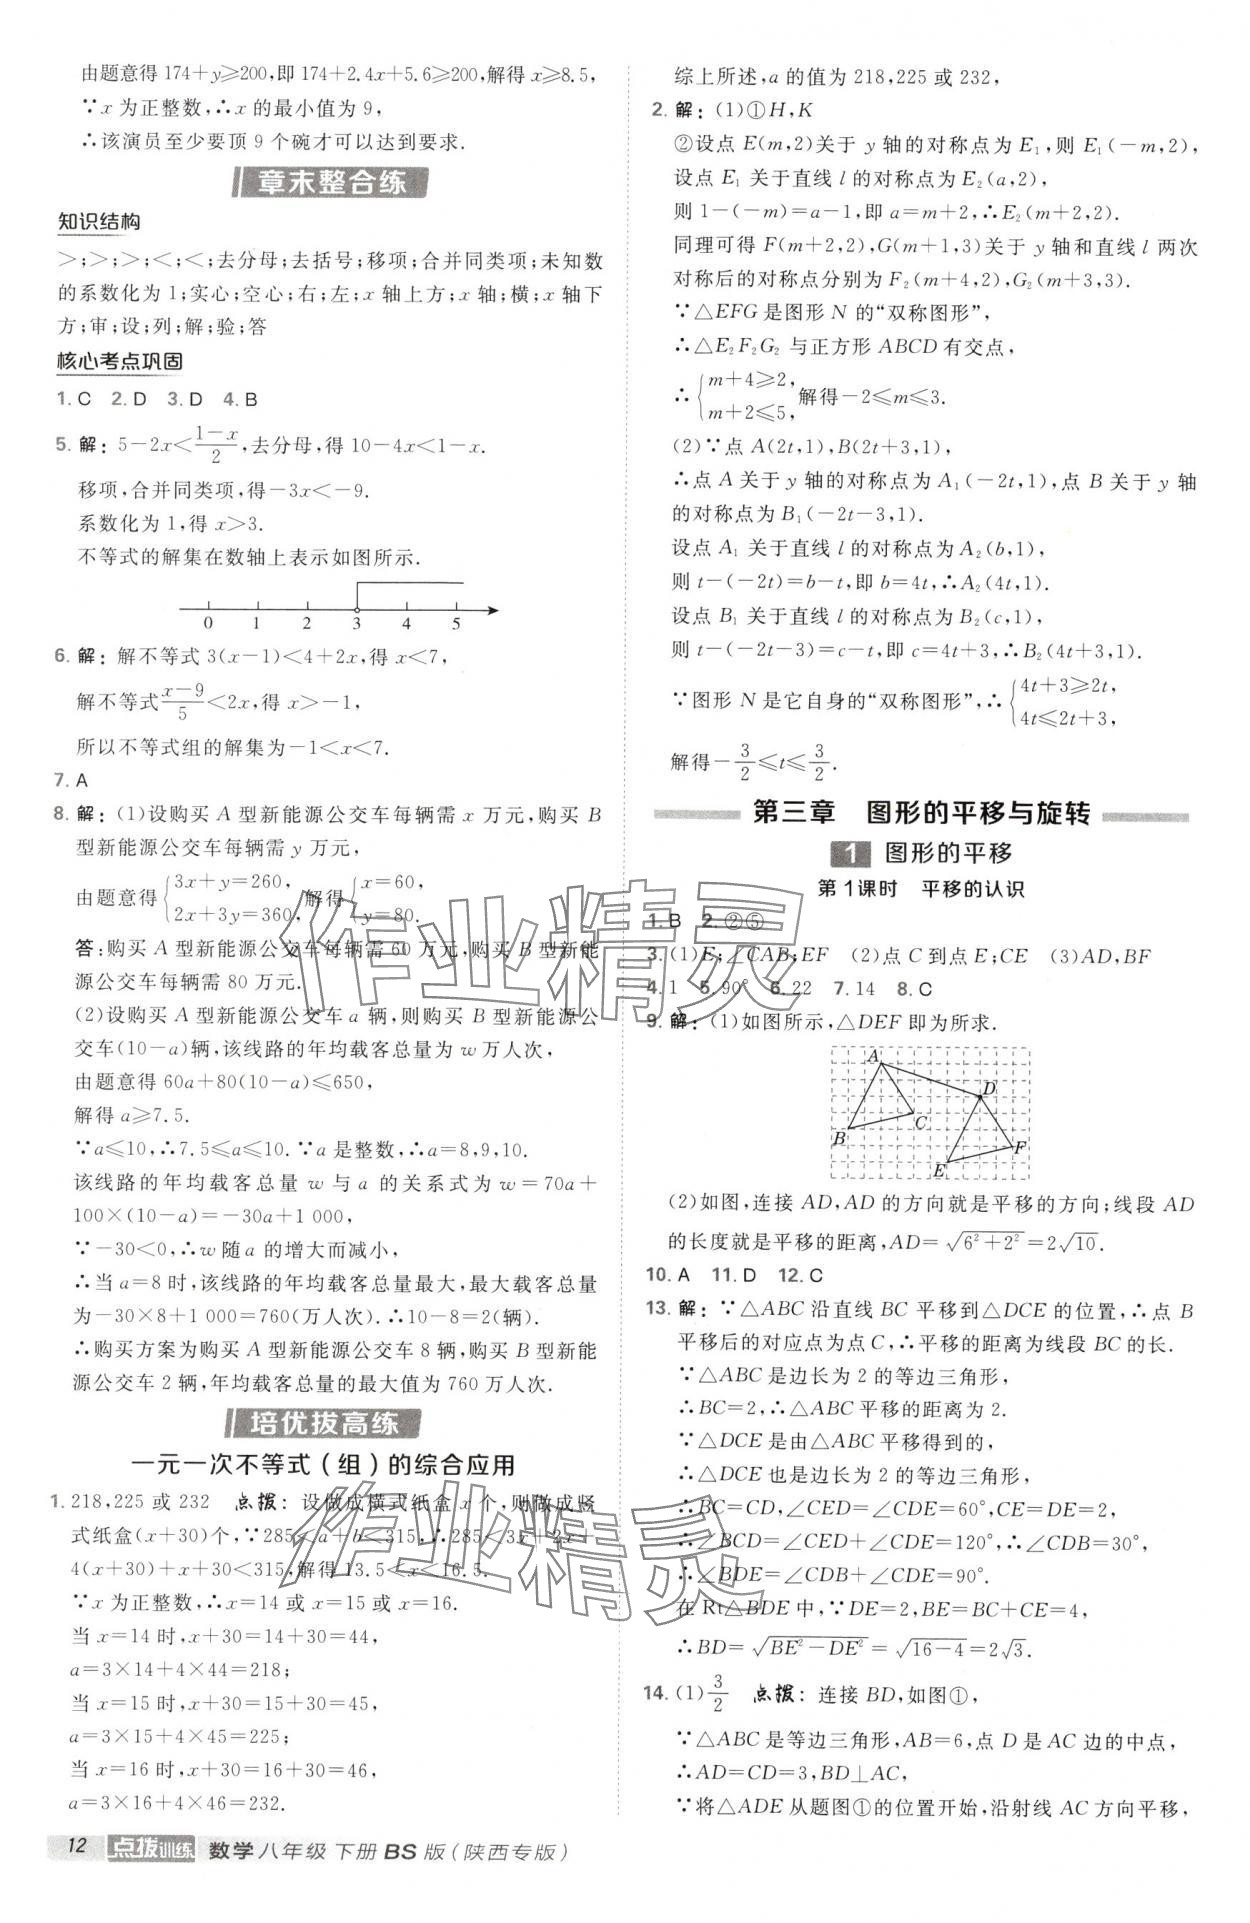 由题意得 174+y≥200,即 174+2.4x+5.6≥200,解得 x≥8.5,
∵x 为正整数,∴x 的最小值为 9,
∴该演员至少要顶 9 个碗才可以达到要求.
章末整合练
知识结构
>;>;>;<;<;去分母;去括号;移项;合并同类项;未知数
的系数化为 1;实心;空心;右;左;x 轴上方;x 轴;横;x 轴下
方;审;设;列;解;验;答
核心考点巩固
1. C 2. D 3. D 4. B
5. 解:5-2x<\frac{1-x}{2},去分母,得 10-4x<1-x.
移项,合并同类项,得-3x<-9.
系数化为 1,得 x>3.
不等式的解集在数轴上表示如图所示.
0 1 2 3 4 5
6. 解:解不等式 3(x-1)<4+2x,得 x<7,
解不等式\frac{x-9}{5}<2x,得 x>-1,
所以不等式组的解集为-1<x<7.
7. A
8. 解:(1)设购买 A 型新能源公交车每辆需 x 万元,购买 B
型新能源公交车每辆需 y 万元,
由题意得{3x+y=260, 2x+3y=360,解得{x=60, y=80.
答:购买 A 型新能源公交车每辆需 60 万元,购买 B 型新能
源公交车每辆需 80 万元.
(2)设购买 A 型新能源公交车 a 辆,则购买 B 型新能源公
交车(10-a)辆,该线路的年均载客总量为 w 万人次,
由题意得 60a+80(10-a)≤650,
解得 a≥7.5.
∵a≤10,∴7.5≤a≤10.∵a 是整数,∴a=8,9,10.
该线路的年均载客总量 w 与 a 的关系式为 w=70a+
100×(10-a)=-30a+1 000,
∵-30<0,∴w 随 a 的增大而减小,
∴当 a=8 时,该线路的年均载客总量最大,最大载客总量
为-30×8+1 000=760(万人次).∴10-8=2(辆).
∴购买方案为购买 A 型新能源公交车 8 辆,购买 B 型新能
源公交车 2 辆,年均载客总量的最大值为 760 万人次.
培优拔高练
一元一次不等式(组)的综合应用
1. 218,225 或 232 点拨:设做成横式纸盒 x 个,则做成竖
式纸盒(x+30)个,∵285<a+b<315,∴285<3x+2x+
4(x+30)+x+30<315,解得 13.5<x<16.5.
∵x 为正整数,∴x=14 或 x=15 或 x=16.
当 x=14 时,x+30=14+30=44,
a=3×14+4×44=218;
当 x=15 时,x+30=15+30=45,
a=3×15+4×45=225;
当 x=16 时,x+30=16+30=46,
a=3×16+4×46=232.
综上所述,a 的值为 218,225 或 232,
2. 解:(1)①H,K
②设点 E(m,2)关于 y 轴的对称点为 E₁,则 E₁(-m,2),
设点 E₁ 关于直线 l 的对称点为 E₂(a,2),
则 1-(-m)=a-1,即 a=m+2,∴E₂(m+2,2).
同理可得 F(m+2,2),G(m+1,3)关于 y 轴和直线 l 两次
对称后的对称点分别为 F₂(m+4,2),G₂(m+3,3).
∵△EFG 是图形 N 的“双称图形”,
∴△E₂F₂G₂ 与正方形 ABCD 有交点,
∴{m+4≥2, m+2≤5,解得-2≤m≤3.
(2)∵点 A(2t,1),B(2t+3,1),
∴点 A 关于 y 轴的对称点为 A₁(-2t,1),点 B 关于 y 轴
的对称点为 B₁(-2t-3,1).
设点 A₁ 关于直线 l 的对称点为 A₂(b,1),
则 t-(-2t)=b-t,即 b=4t,∴A₂(4t,1).
设点 B₁ 关于直线 l 的对称点为 B₂(c,1),
则 t-(-2t-3)=c-t,即 c=4t+3,∴B₂(4t+3,1).
∵图形 N 是它自身的“双称图形”,∴{4t+3≥2t, 4t≤2t+3,
解得-\frac{3}{2}≤t≤\frac{3}{2}.
第三章 图形的平移与旋转
1 图形的平移
第 1 课时 平移的认识
1. B 2. ②⑤
3. (1)E;∠CAB;EF (2)点 C 到点 E;CE (3)AD,BF
4. 1 5. 90° 6. 22 7. 14 8. C
9. 解:(1)如图所示,△DEF 即为所求.
A
D
C
B
F
E
(2)如图,连接 AD,AD 的方向就是平移的方向;线段 AD
的长度就是平移的距离,AD=√(6²+2²)=2√10.
10. A 11. D 12. C
13. 解:∵△ABC 沿直线 BC 平移到△DCE 的位置,∴点 B
平移后的对应点为点 C,∴平移的距离为线段 BC 的长.
∵△ABC 是边长为 2 的等边三角形,
∴BC=2,∴△ABC 平移的距离为 2.
∵△DCE 是由△ABC 平移得到的,
∴△DCE 也是边长为 2 的等边三角形,
∴BC=CD,∠CED=∠CDE=60°,CE=DE=2,
∴∠BCD=∠CED+∠CDE=120°,∴∠CDB=30°,
∴∠BDE=∠CDB+∠CDE=90°.
在 Rt△BDE 中,∵DE=2,BE=BC+CE=4,
∴BD=√(BE²-DE²)=√(16-4)=2√3.
14. (1)\frac{3}{2} 点拨:连接 BD,如图①,
∵△ABC 是等边三角形,AB=6,点 D 是 AC 边的中点,
∴AD=CD=3,BD⊥AC,
∵将△ADE 从题图①的位置开始,沿射线 AC 方向平移,
12 点拨训练 数学 八年级 下册 BS 版(陕西专版)
作业精灵
作业精灵